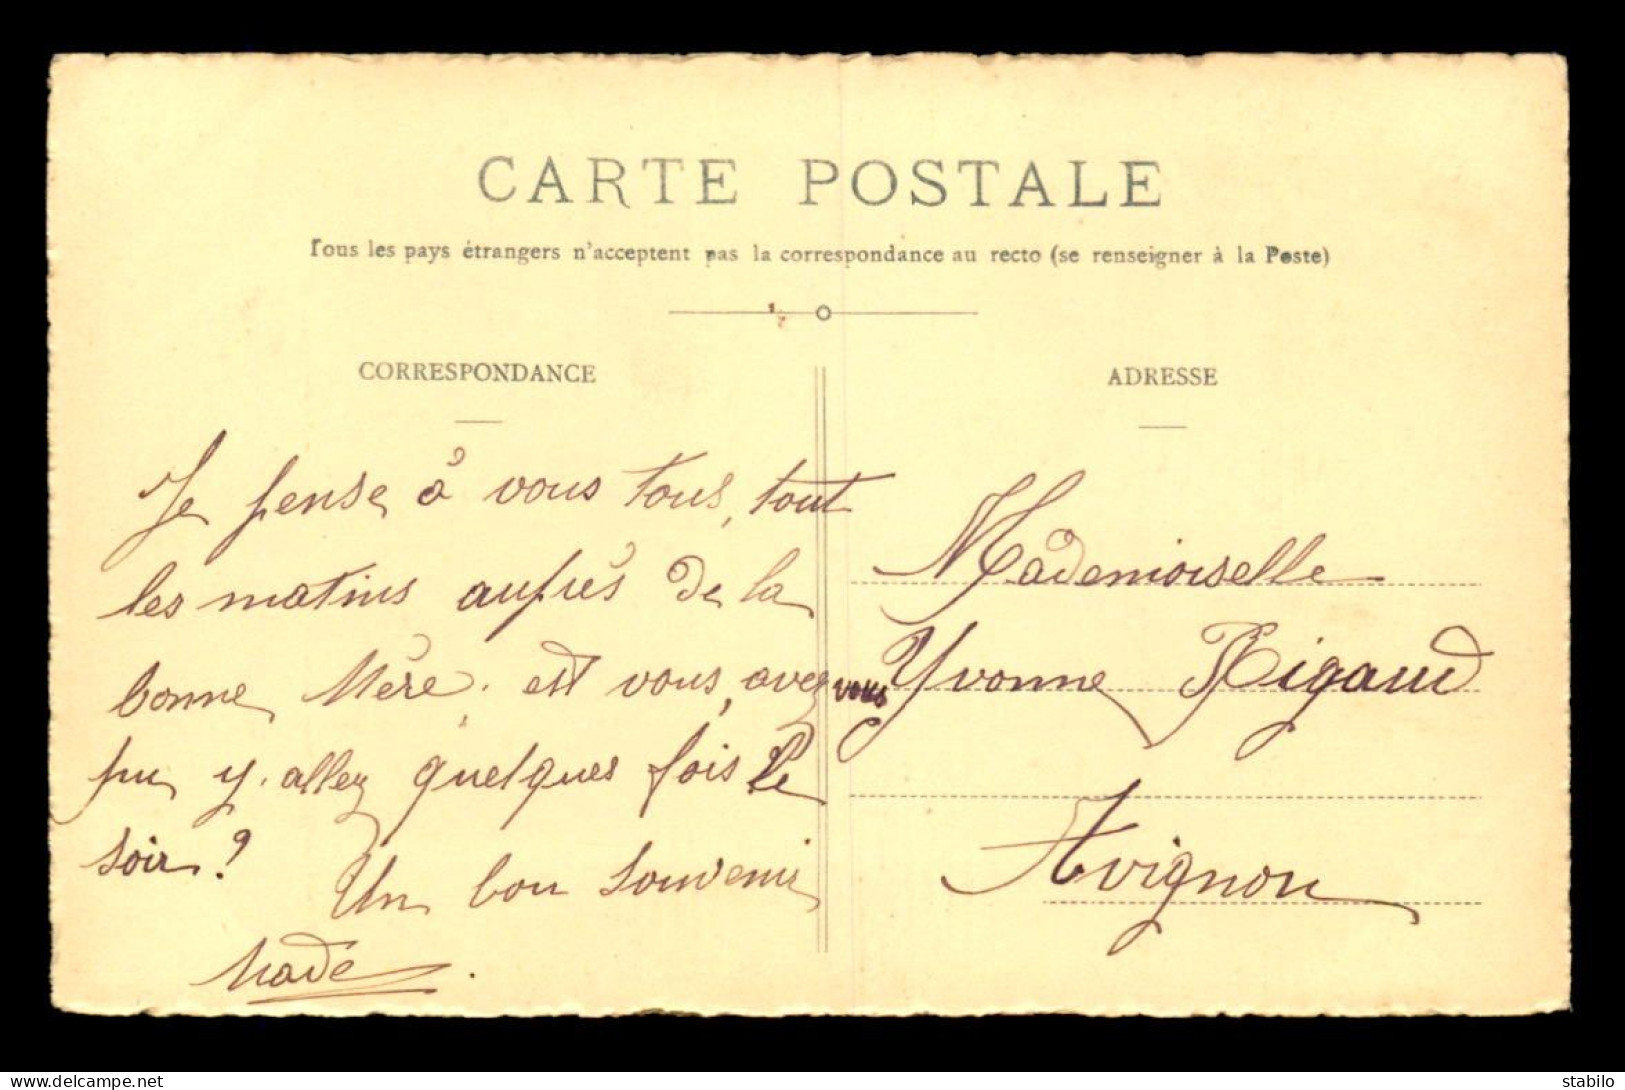 CARTE POSTALE
Tous les pays étrangers n'acceptent pas la correspondance au recto (se renseigner à la Poste)
CORRESPONDANCE
Je pense à vous tous, tout
les matins auprès de la
bonne Mère. est vous, avez vous
pu y allez quelques fois le
soir?
Un bon souvenir
Made
ADRESSE
Mademoiselle
Yvonne Rigaud
Avignon
delcampe.net
stabilo